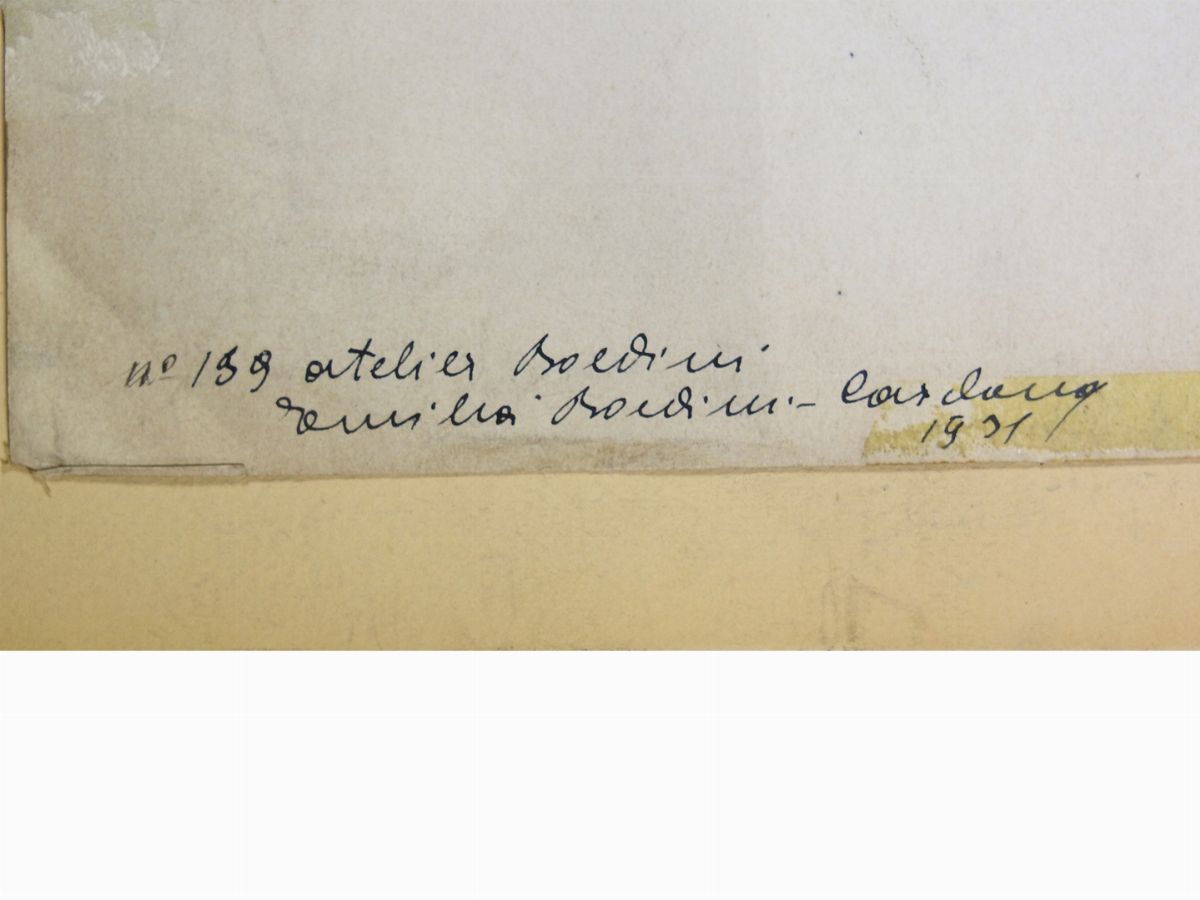 nº 139 atelier Boldini
Emilia Boldini - Cardona
1931